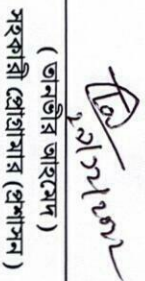 ( তানভীর আহমেদ )
সহকারী প্রোগ্রামার (প্রশাসন )